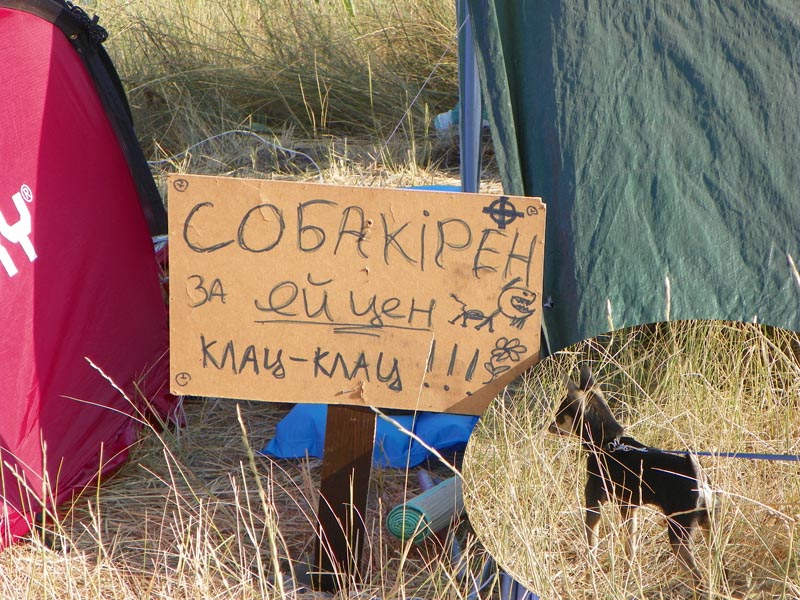 СОБАКІРЕН
ЗА ЕЙЦЕН
КЛАЦ-КЛАЦ!!!